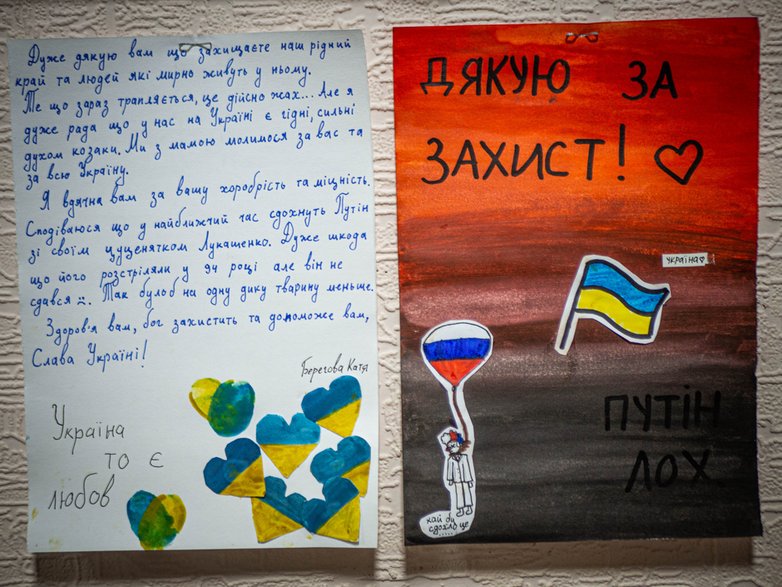 Дуже дякую вам що захищаєте наш рідний
край та людей які мирно живуть у ньому.
Те що зараз трапляється, це дійсно жах... Але я
дуже рада що у нас на Україні є гідні, сильні
духом козаки. Ми з мамою молимося за вас та
за всю Україну.
Я вдячна вам за вашу хоробрість та міцність.
Сподіваюся що у найближчий час сдохнуть Путін
зі своїм цуценятком Лукашенко. Дуже шкода
що його розстріляли у 94 році але він не
сдався :(. Так було б на одну дику тварину меньше.
Здоров'я вам, бог захистить та допоможе вам,
Слава Україні!
Берегова Катя
Україна
то є
любов
ДЯКУЮ ЗА
ЗАХИСТ! ♡
україна♡
ПУТІН
ЛОХ
хай би
сдохло це
.....